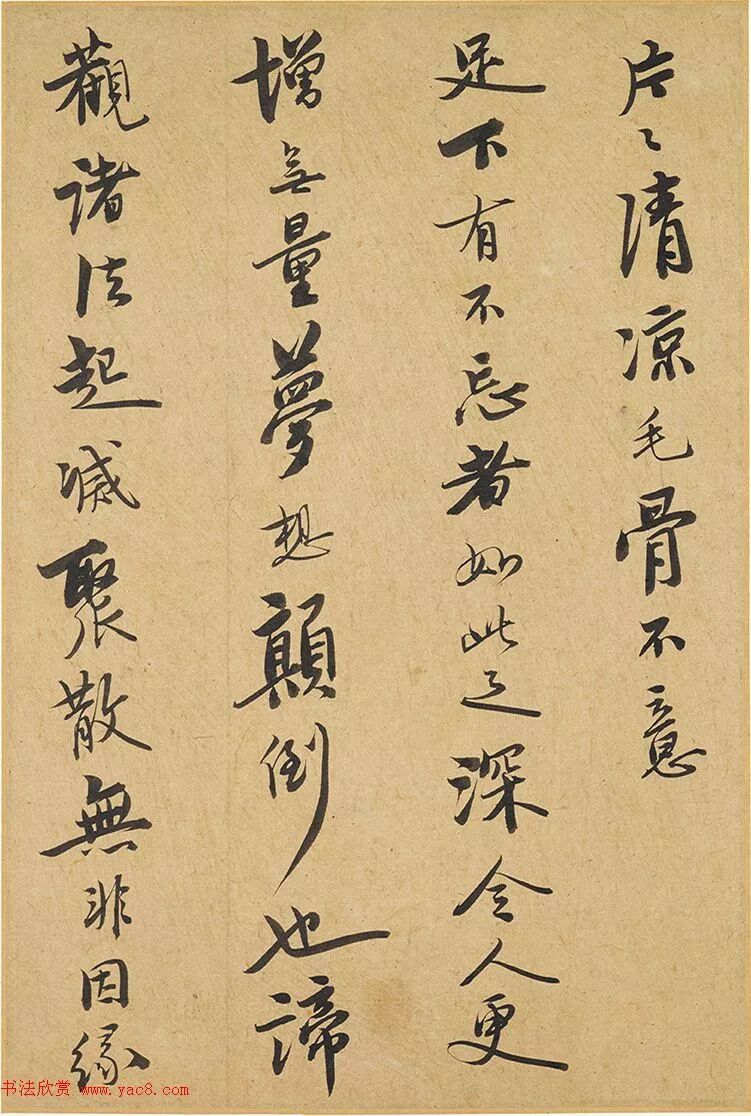 片々清凉毛骨不意
足下有不忘者如此之深令人更
增無量夢想顛倒也諦
觀諸法起滅聚散無非因緣
书法欣赏 www.yac8.com